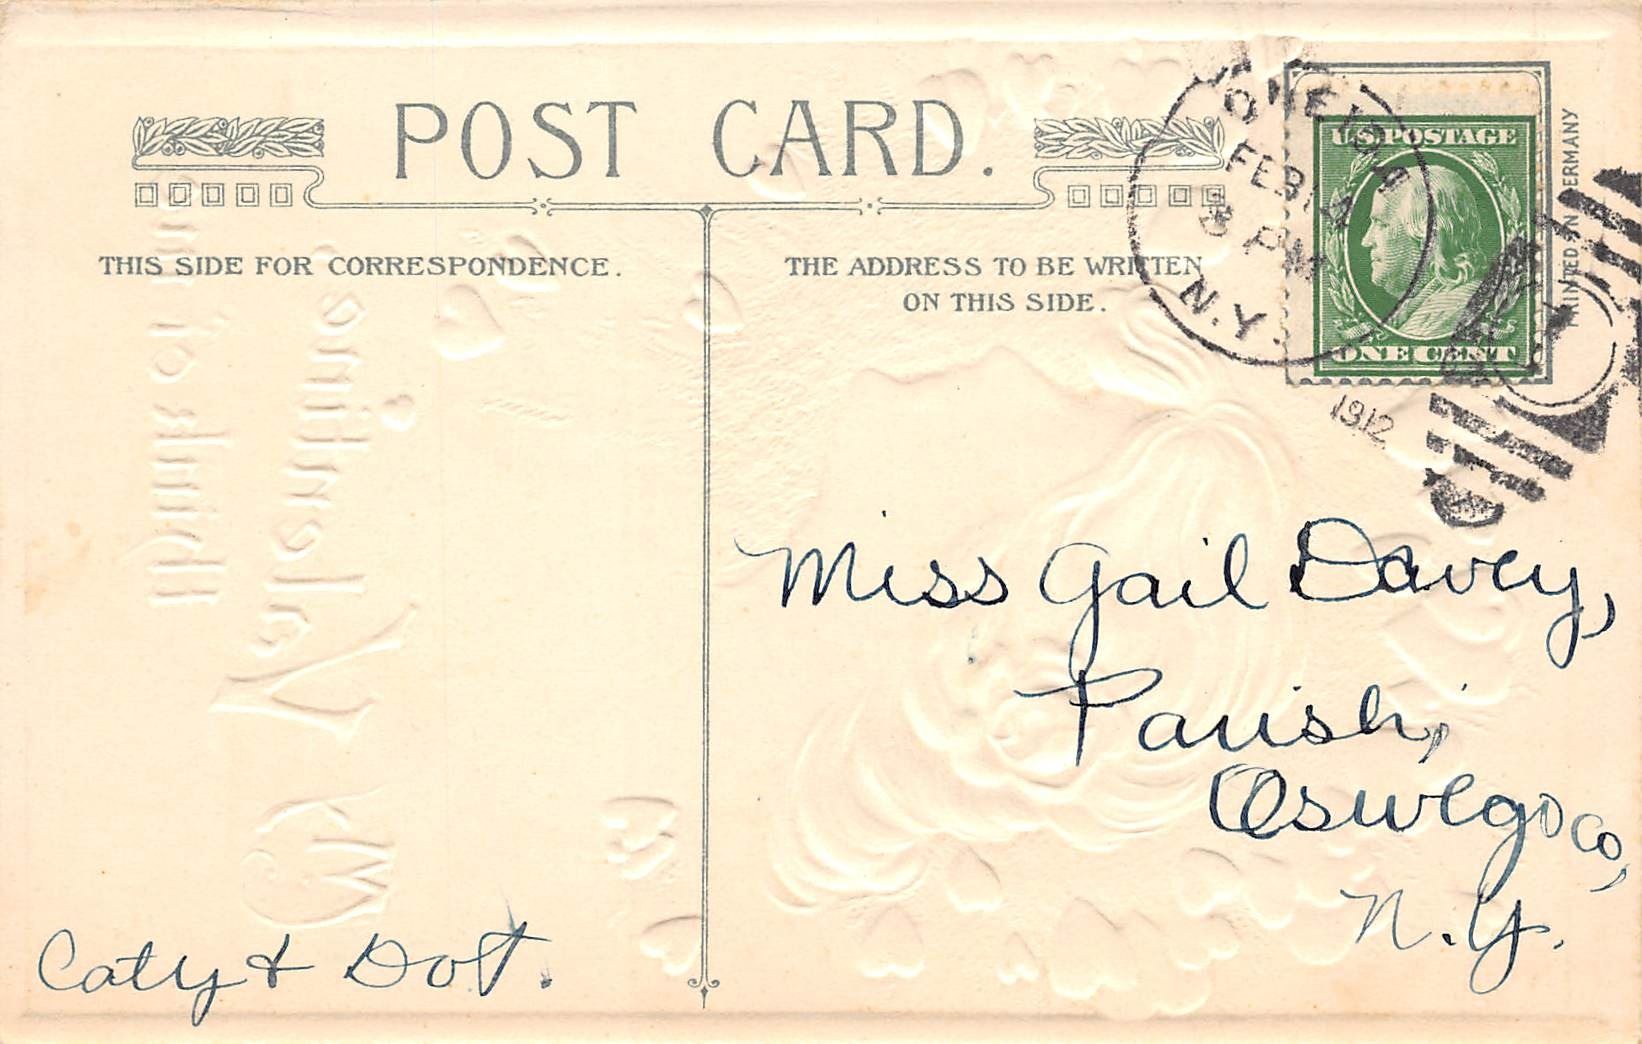 POST CARD.
THIS SIDE FOR CORRESPONDENCE.
THE ADDRESS TO BE WRITTEN
ON THIS SIDE.
ONEIDA
FEB 14
3 PM
N.Y.
1912
U.S. POSTAGE
ONE CENT
PRINTED IN GERMANY
Miss Gail Davey,
Parish,
Oswego Co,
N.Y.
Caty & Dot.